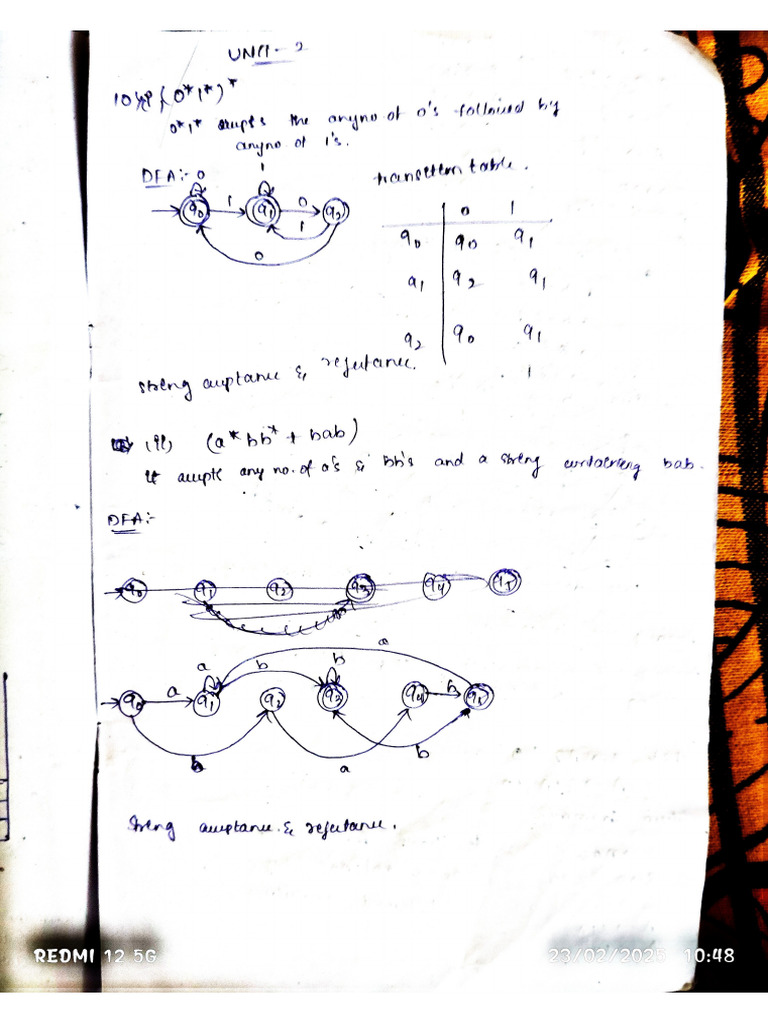 UNIT - 2
10 (i) (0*1*)*
0*1* accepts the anyno of 0's followed by
anyno of 1's.
DFA:-
transition table.
0 1
q0 q0 q1
q1 q2 q1
q2 q0 q1
1
0 1
q0 1 q1 0 q2
1
0
string acceptance & rejectance.
(ii) (a*bb* + bab)
It accepts any no. of a's & bb's and a string containing bab.
DFA:-
q0 q1 q2 q3 q4 q5
a
a b b
q0 a q1 q2 q4 b q5
b a b
string acceptance & rejectance.
REDMI 12 5G 23/02/2025 10:48